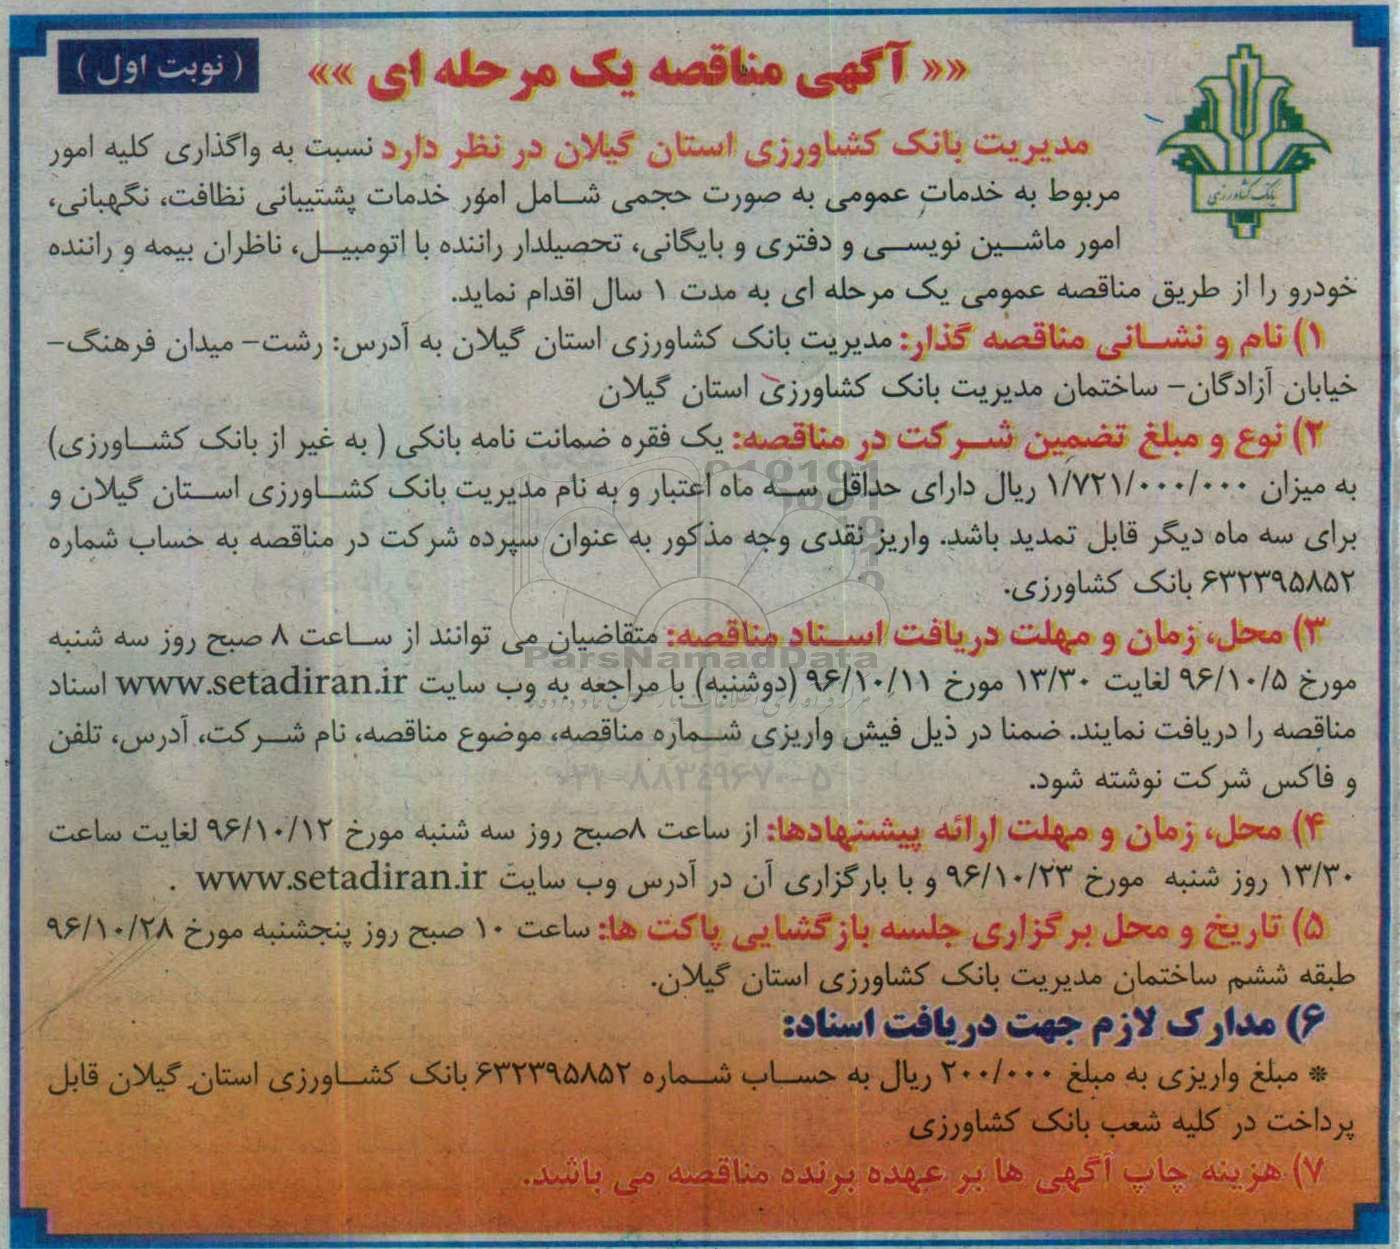 «« آگهی مناقصه یک مرحله ای »»
( نوبت اول )
بانک کشاورزی
مدیریت بانک کشاورزی استان گیلان در نظر دارد نسبت به واگذاری کلیه امور
مربوط به خدمات عمومی به صورت حجمی شامل امور خدمات پشتیبانی نظافت، نگهبانی،
امور ماشین نویسی و دفتری و بایگانی، تحصیلدار راننده با اتومبیل، ناظران بیمه و راننده
خودرو را از طریق مناقصه عمومی یک مرحله ای به مدت ۱ سال اقدام نماید.
۱) نام و نشانی مناقصه گذار: مدیریت بانک کشاورزی استان گیلان به آدرس: رشت- میدان فرهنگ-
خیابان آزادگان- ساختمان مدیریت بانک کشاورزی استان گیلان
۲) نوع و مبلغ تضمین شرکت در مناقصه: یک فقره ضمانت نامه بانکی ( به غیر از بانک کشاورزی)
به میزان ۱/۷۲۱/۰۰۰/۰۰۰ ریال دارای حداقل سه ماه اعتبار و به نام مدیریت بانک کشاورزی استان گیلان و
برای سه ماه دیگر قابل تمدید باشد. واریز نقدی وجه مذکور به عنوان سپرده شرکت در مناقصه به حساب شماره
۶۳۲۳۹۵۸۵۲ بانک کشاورزی.
۳) محل، زمان و مهلت دریافت اسناد مناقصه: متقاضیان می توانند از ساعت ۸ صبح روز سه شنبه
ParsNamadData
مورخ ۹۶/۱۰/۵ لغایت ۱۳/۳۰ مورخ ۹۶/۱۰/۱۱ (دوشنبه) با مراجعه به وب سایت www.setadiran.ir اسناد
مناقصه را دریافت نمایند. ضمنا در ذیل فیش واریزی شماره مناقصه، موضوع مناقصه، نام شرکت، آدرس، تلفن
و فاکس شرکت نوشته شود.
۰۲۱-۸۸۳۴۹۶۷۰-۵
۴) محل، زمان و مهلت ارائه پیشنهادها: از ساعت ۸صبح روز سه شنبه مورخ ۹۶/۱۰/۱۲ لغایت ساعت
۱۳/۳۰ روز شنبه مورخ ۹۶/۱۰/۲۳ و با بارگزاری آن در آدرس وب سایت www.setadiran.ir .
۵) تاریخ و محل برگزاری جلسه بازگشایی پاکت ها: ساعت ۱۰ صبح روز پنجشنبه مورخ ۹۶/۱۰/۲۸
طبقه ششم ساختمان مدیریت بانک کشاورزی استان گیلان.
۶) مدارک لازم جهت دریافت اسناد:
* مبلغ واریزی به مبلغ ۲۰۰/۰۰۰ ریال به حساب شماره ۶۳۲۳۹۵۸۵۲ بانک کشاورزی استان گیلان قابل
پرداخت در کلیه شعب بانک کشاورزی
۷) هزینه چاپ آگهی ها بر عهده برنده مناقصه می باشد.